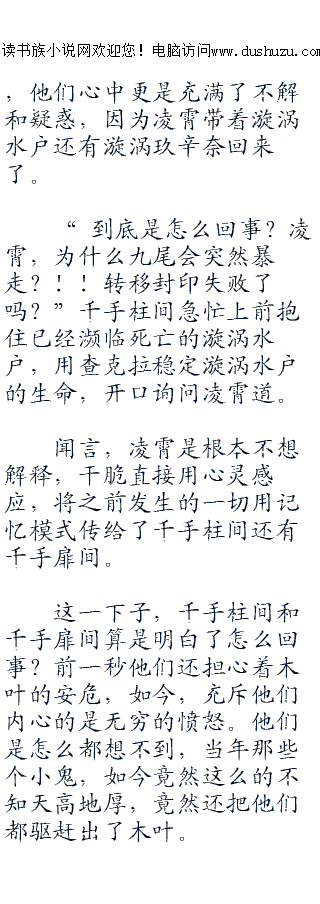 读书族小说网欢迎您！电脑访问www.dushuzu.com
，他们心中更是充满了不解
和疑惑，因为凌霄带着漩涡
水户还有漩涡玖辛奈回来
了。
“ 到底是怎么回事？凌
霄，为什么九尾会突然暴
走？！！转移封印失败了
吗？”千手柱间急忙上前抱
住已经濒临死亡的漩涡水
户，用查克拉稳定漩涡水户
的生命，开口询问凌霄道。
闻言，凌霄是根本不想
解释，干脆直接用心灵感
应，将之前发生的一切用记
忆模式传给了千手柱间还有
千手扉间。
这一下子，千手柱间和
千手扉间算是明白了怎么回
事？前一秒他们还担心着木
叶的安危，如今，充斥他们
内心的是无穷的愤怒。他们
是怎么都想不到，当年那些
个小鬼，如今竟然这么的不
知天高地厚，竟然还把他们
都驱赶出了木叶。